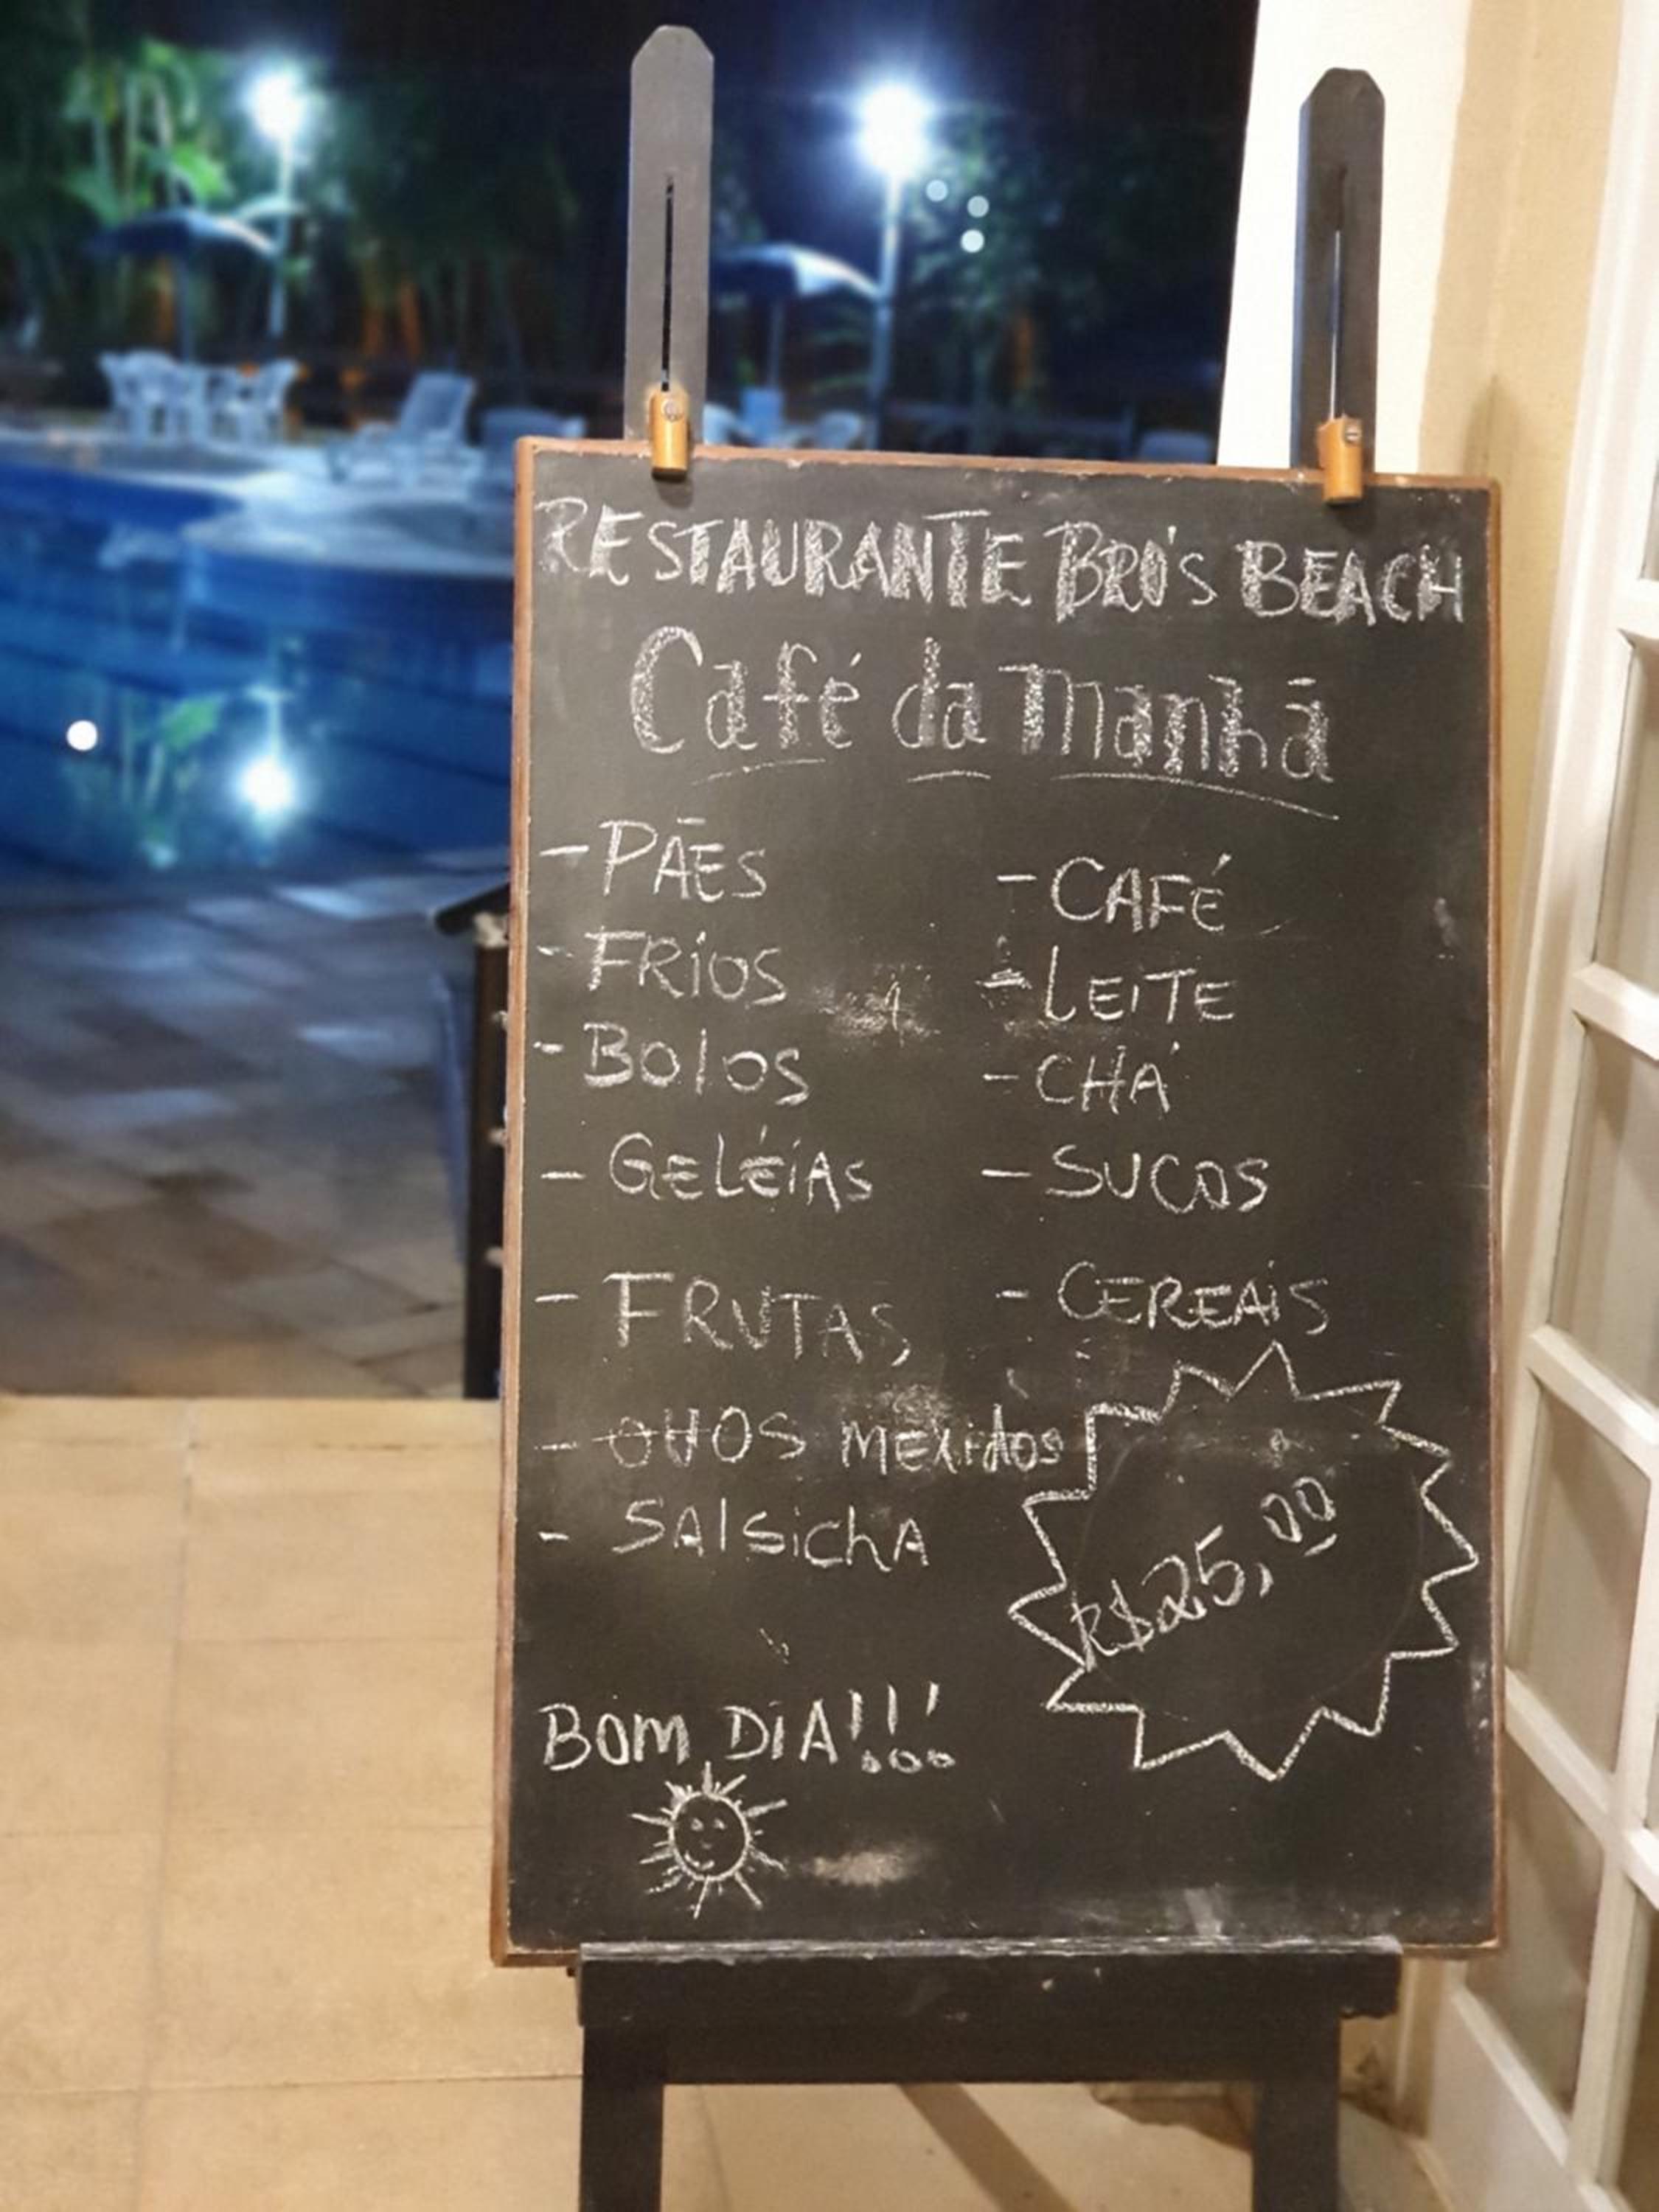 RESTAURANTE BRO'S BEACH
Café da manhã
- PÃES
- FRÍOS
- BOlOS
- GELÉIAS
- FRUTAS
- OVOS MEXIDOS
- SAlSichA
- CAFÉ
- LEITE
- CHÁ
- SUCOS
- CEREAIS
R$25,00
BOM DIA!!!